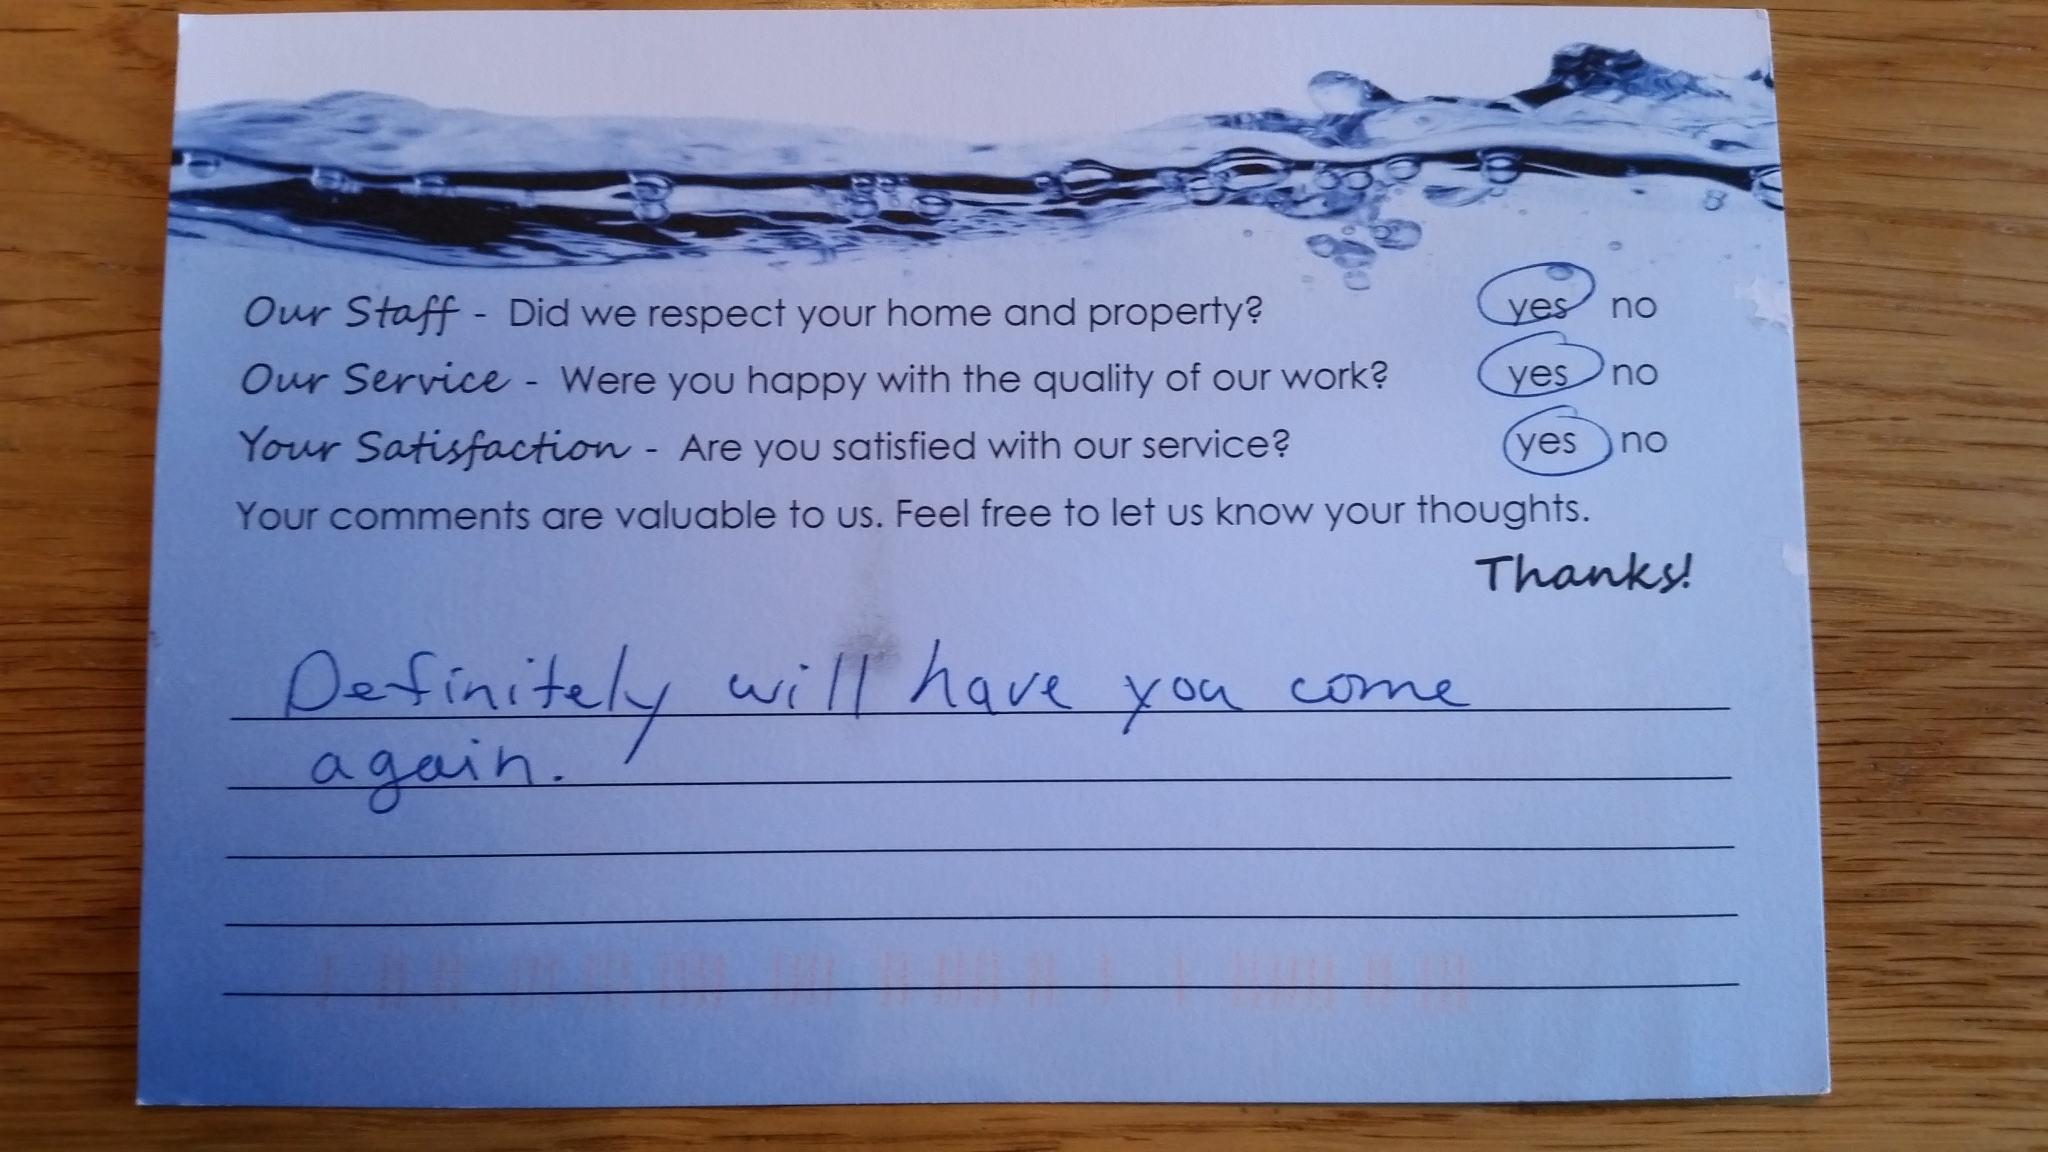 Our Staff - Did we respect your home and property? yes no
Our Service - Were you happy with the quality of our work? yes no
Your Satisfaction - Are you satisfied with our service? yes no
Your comments are valuable to us. Feel free to let us know your thoughts.
Thanks!
Definitely will have you come
again.